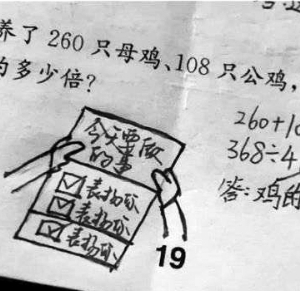 养了 260 只母鸡、108 只公鸡，
的多少倍？
260+10
368÷4
答:鸡的
今天要做
的事
表扬你
表扬你
表扬你
19